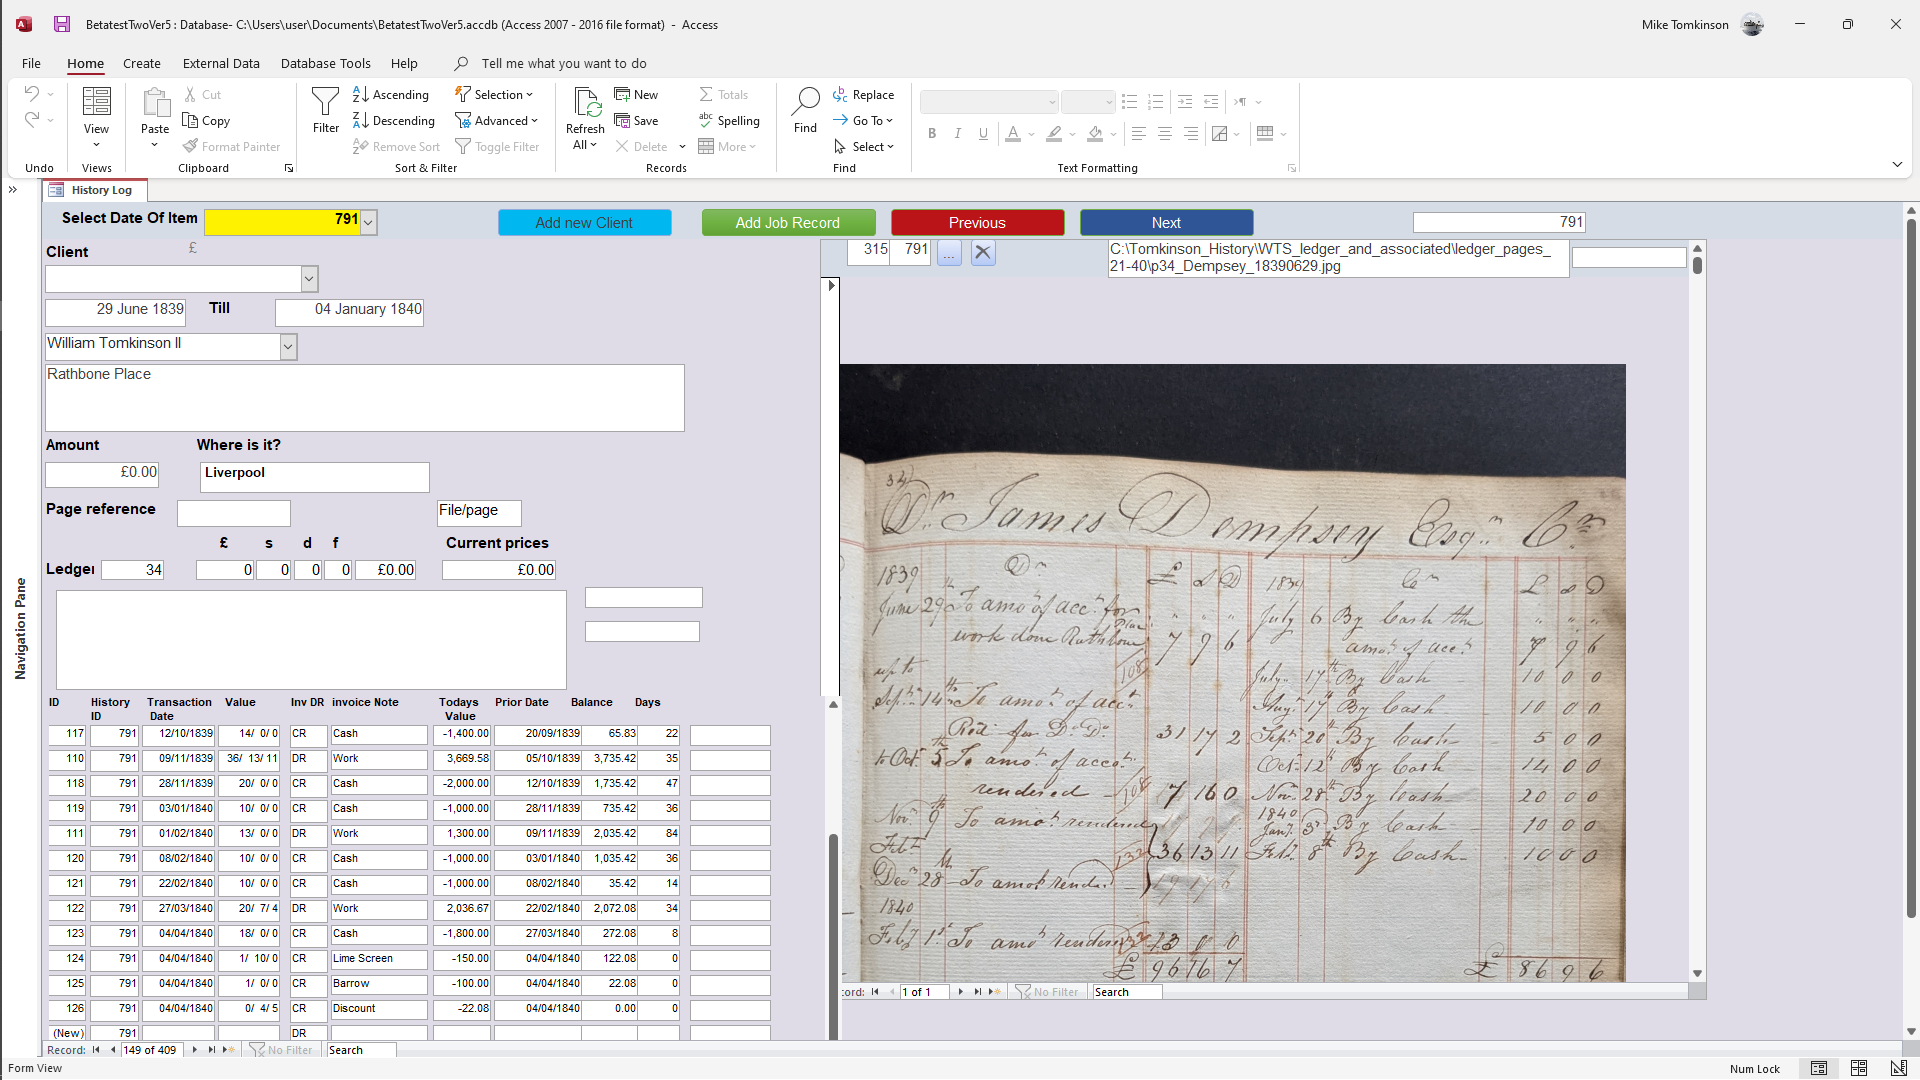 BetatestTwoVer5 : Database- C:\Users\user\Documents\BetatestTwoVer5.accdb (Access 2007 - 2016 file format) - Access
Mike Tomkinson
File Home Create External Data Database Tools Help Tell me what you want to do
View
Paste
Cut
Copy
Format Painter
Filter
Ascending
Descending
Remove Sort
Selection
Advanced
Toggle Filter
Refresh All
New
Save
Delete
Totals
Spelling
More
Find
Replace
Go To
Select
B I U A
Undo Views Clipboard Sort & Filter Records Find Text Formatting
History Log
Select Date Of Item 791 Add new Client Add Job Record Previous Next 791
Client £
29 June 1839 Till 04 January 1840
William Tomkinson II
Rathbone Place
Amount Where is it?
£0.00 Liverpool
Page reference File/page
£ s d f Current prices
Ledger 34 0 0 0 0 £0.00 £0.00
ID History ID Transaction Date Value Inv DR invoice Note Todays Value Prior Date Balance Days
117 791 12/10/1839 14/ 0/ 0 CR Cash -1,400.00 20/09/1839 65.83 22
110 791 09/11/1839 36/ 13/ 11 DR Work 3,669.58 05/10/1839 3,735.42 35
118 791 28/11/1839 20/ 0/ 0 CR Cash -2,000.00 12/10/1839 1,735.42 47
119 791 03/01/1840 10/ 0/ 0 CR Cash -1,000.00 28/11/1839 735.42 36
111 791 01/02/1840 13/ 0/ 0 DR Work 1,300.00 09/11/1839 2,035.42 84
120 791 08/02/1840 10/ 0/ 0 CR Cash -1,000.00 03/01/1840 1,035.42 36
121 791 22/02/1840 10/ 0/ 0 CR Cash -1,000.00 08/02/1840 35.42 14
122 791 27/03/1840 20/ 7/ 4 DR Work 2,036.67 22/02/1840 2,072.08 34
123 791 04/04/1840 18/ 0/ 0 CR Cash -1,800.00 27/03/1840 272.08 8
124 791 04/04/1840 1/ 10/ 0 CR Lime Screen -150.00 04/04/1840 122.08 0
125 791 04/04/1840 1/ 0/ 0 CR Barrow -100.00 04/04/1840 22.08 0
126 791 04/04/1840 0/ 4/ 5 CR Discount -22.08 04/04/1840 0.00 0
(New) 791 DR
Record: 149 of 409 No Filter Search
Navigation Pane
315 791 ... C:\Tomkinson_History\WTS_ledger_and_associated\ledger_pages_
21-40\p34_Dempsey_18390629.jpg
34
Dr. James Dempsey Esqr. Cr
1839 Dr £ s D 1839 Cr £ s D
June 29 To amot of acct for July 6 By Cash the
work done Rathbone Place 7 9 6 amot of acct 7 9 6
up to 108 July 17th By Cash 10 0 0
Sepr 14th To amot of acct Augt 17th By Cash 10 0 0
Red for Do Do 31 17 2 Sepr 20th By Cash 5 0 0
to Oct 5th To amot of acct Oct 12th By Cash 14 0 0
rendered 108 7 16 0 Novr 28th By Cash 20 0 0
Novr 9th To amot rendered 1840 Jany 3rd By Cash 10 0 0
132 36 13 11 Feby 8th By Cash 10 0 0
Decr 28 To amot rendd
1840
Feby 1st To amot rendered 132 13 0 0
£ 96 16 7 £ 86 9 6
cord: 1 of 1 No Filter Search
Form View Num Lock